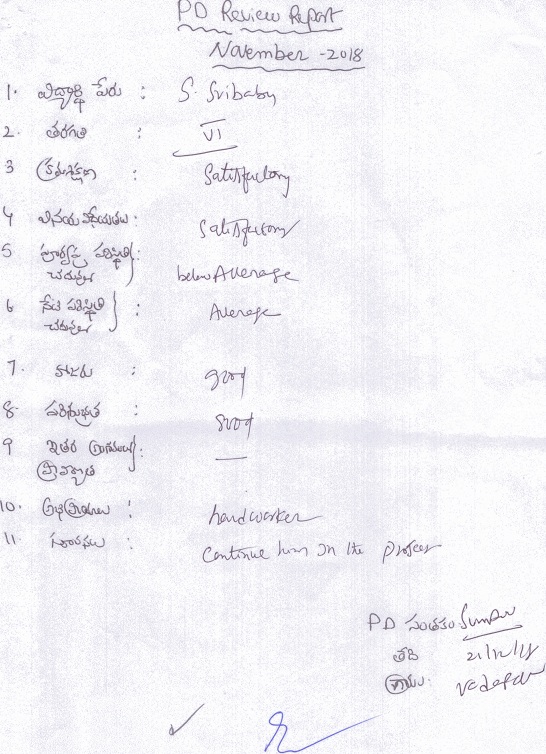 PD Review Report
November - 2018
1. విద్యార్థి పేరు : S. Sribaby
2. తరగతి : VI
3 క్రమశిక్షణ : Satisfactory
4 వినయ విధేయతలు : Satisfactory
5 పూర్వపు పరిస్థితి
చదువులో : below Average
6 నేటి పరిస్థితి
చదువులో Average
7. హాజరు : good
8. పరిశుభ్రత : good
9 ఇతర
ప్రావీణ్యత : —
10. అభిప్రాయాలు : hard worker
11. సూచనలు : Continue him in the
PD సంతకం:
తేది 21/12/18
గ్రామం: